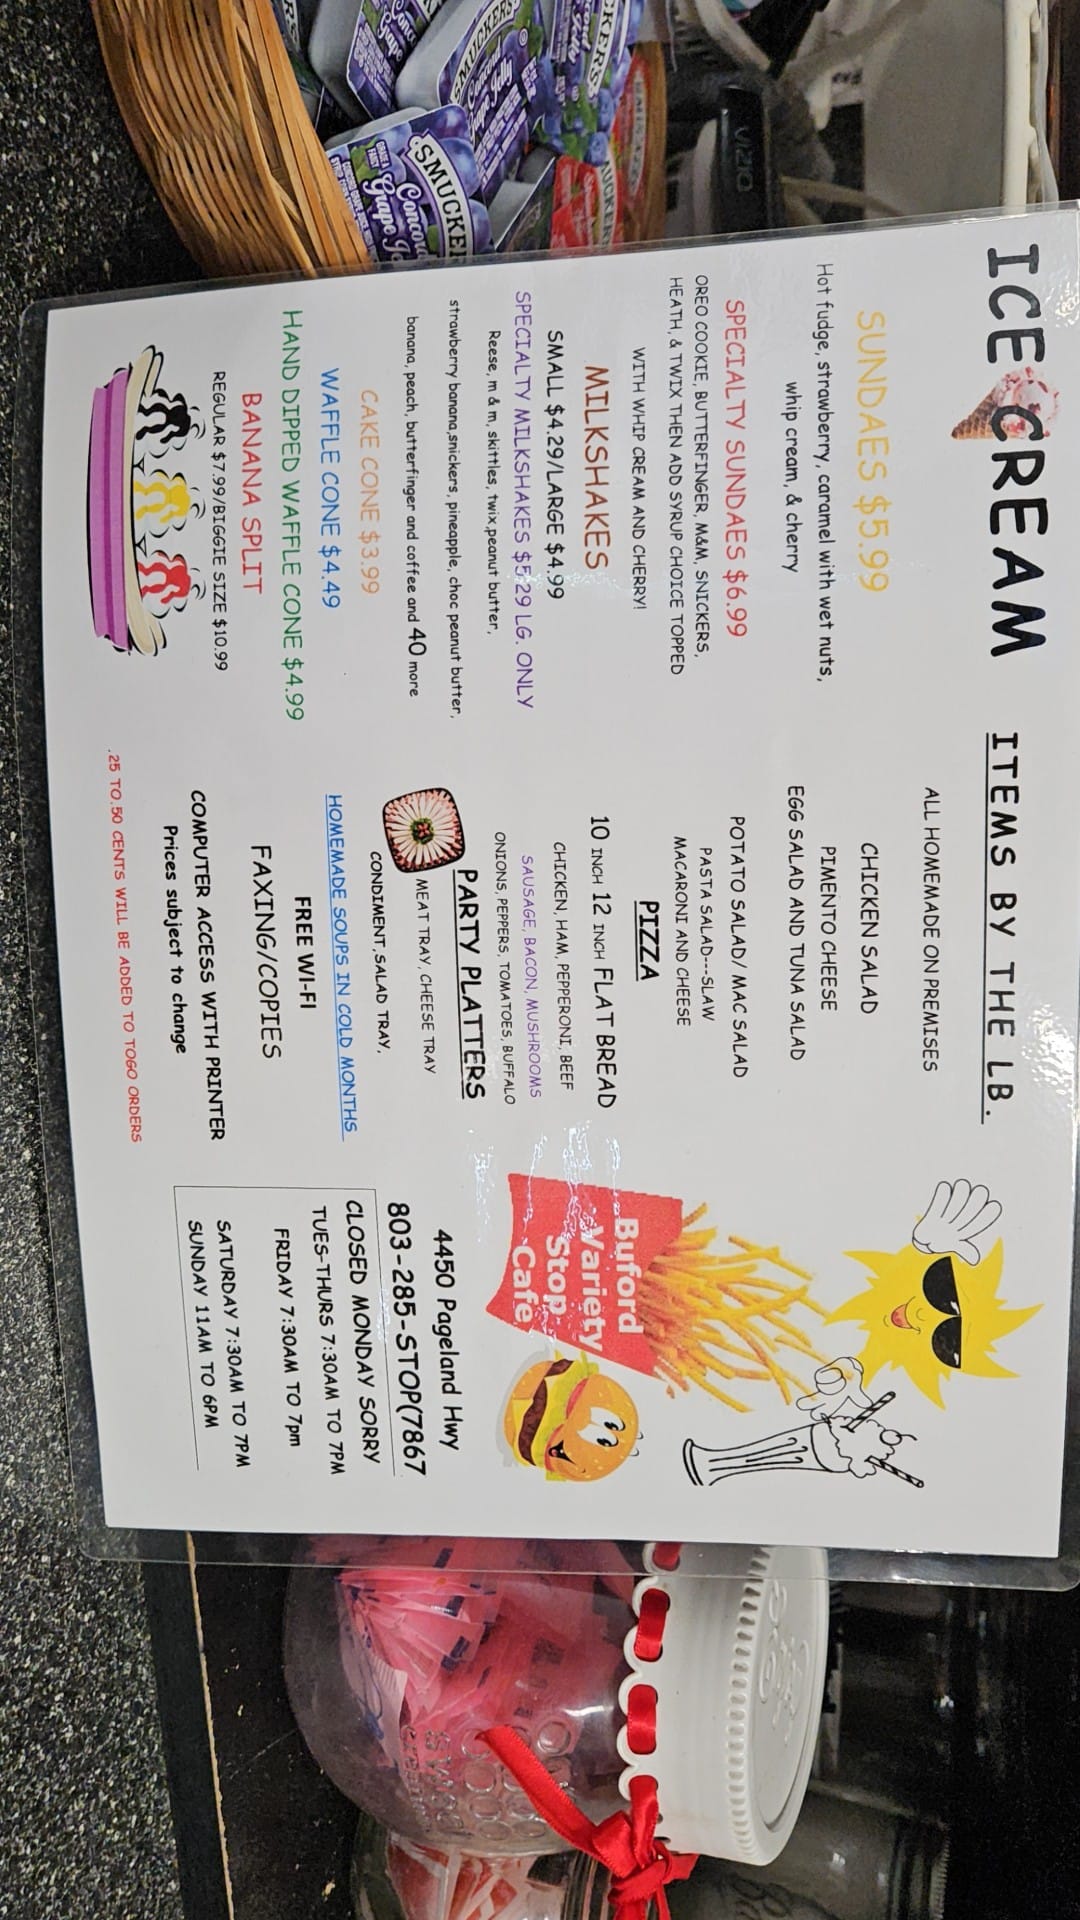 ICE CREAM
SUNDAES $5.99
Hot fudge, strawberry, caramel with wet nuts,
whip cream, & cherry
SPECIALTY SUNDAES $6.99
OREO COOKIE, BUTTERFINGER, M&M, SNICKERS,
HEATH, & TWIX THEN ADD SYRUP CHOICE TOPPED
WITH WHIP CREAM AND CHERRY!
MILKSHAKES
SMALL $4.29/LARGE $4.99
SPECIALTY MILKSHAKES $5.29 LG. ONLY
Reese, m & m, skittles, twix,peanut butter,
strawberry banana,snickers, pineapple, choc peanut butter,
banana, peach, butterfinger and coffee and 40 more
CAKE CONE $3.99
WAFFLE CONE $4.49
HAND DIPPED WAFFLE CONE $4.99
BANANA SPLIT
REGULAR $7.99/BIGGIE SIZE $10.99
ITEMS BY THE LB.
ALL HOMEMADE ON PREMISES
CHICKEN SALAD
PIMENTO CHEESE
EGG SALAD AND TUNA SALAD
POTATO SALAD/ MAC SALAD
PASTA SALAD---SLAW
MACARONI AND CHEESE
PIZZA
10 INCH 12 INCH FLAT BREAD
CHICKEN, HAM, PEPPERONI, BEEF
SAUSAGE, BACON, MUSHROOMS
ONIONS, PEPPERS, TOMATOES, BUFFALO
PARTY PLATTERS
MEAT TRAY, CHEESE TRAY
CONDIMENT,SALAD TRAY,
HOMEMADE SOUPS IN COLD MONTHS
FREE WI-FI
FAXING/COPIES
COMPUTER ACCESS WITH PRINTER
Prices subject to change
.25 TO.50 CENTS WILL BE ADDED TO TOGO ORDERS
Buford
Variety
Stop
Cafe
4450 Pageland Hwy
803-285-STOP(7867
CLOSED MONDAY SORRY
TUES-THURS 7:30AM TO 7PM
FRIDAY 7:30AM TO 7pm
SATURDAY 7:30AM TO 7PM
SUNDAY 11AM TO 6PM
SMUCKER'S
Concord
Grape Jelly
SMUCKE
Concor
Grape Je
VIZIO